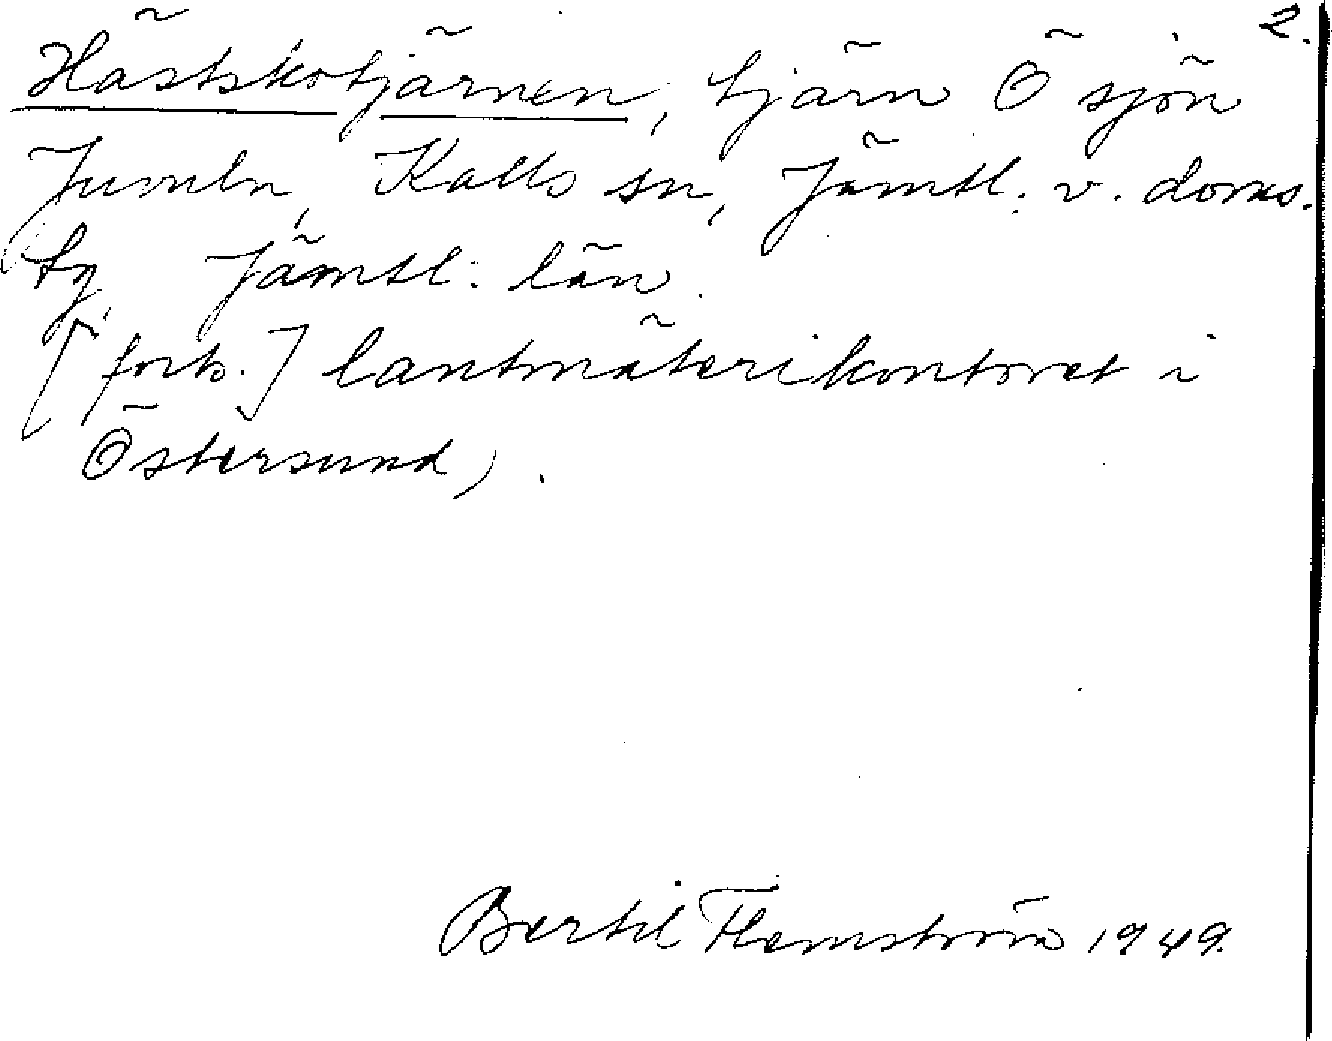 2.
Hästskotjärnen, tjärn Ö sjön
Juveln, Kalls sn, Jämtl. v. doms.
tg Jämtl. län.
[forts.] lantmäterikontoret i
Östersund).
Bertil Flemström 1949.